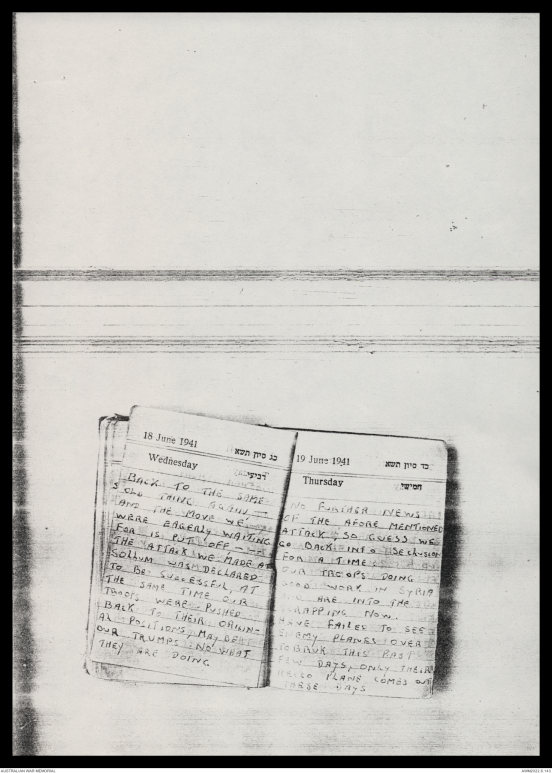 18 June 1941
כג סיון תשא
Wednesday
רביעי
BACK TO THE SAME
OLD THING AGAIN —
AND THE MOVE WE
WERE EAGERLY WAITING
FOR IS PUT OFF —
THE ATTACK WE MADE AT
SOLLUM WAS DECLARED
TO BE SUCCESSFUL, AT
THE SAME TIME OUR
TROOPS WERE PUSHED
BACK TO THEIR ORIGIN-
AL POSITIONS, MAY BE
OUR TRUMPS NO WHAT
THEY ARE DOING
19 June 1941
כד סיון תשא
Thursday
חמישי
NO FURTHER NEWS
OF THE AFORE MENTIONED
ATTACK SO GUESS WE
GO BACK INTO SECLUSION
FOR A TIME
OUR TROOPS DOING
GOOD WORK IN SYRIA
ARE INTO THE
SCRAPPING NOW.
HAVE FAILED TO SEE
ENEMY PLANES OVER
TOBRUK THIS PAST
FEW DAYS, ONLY THEIR
PLANE COMES OUT
THESE DAYS
AUSTRALIAN WAR MEMORIAL